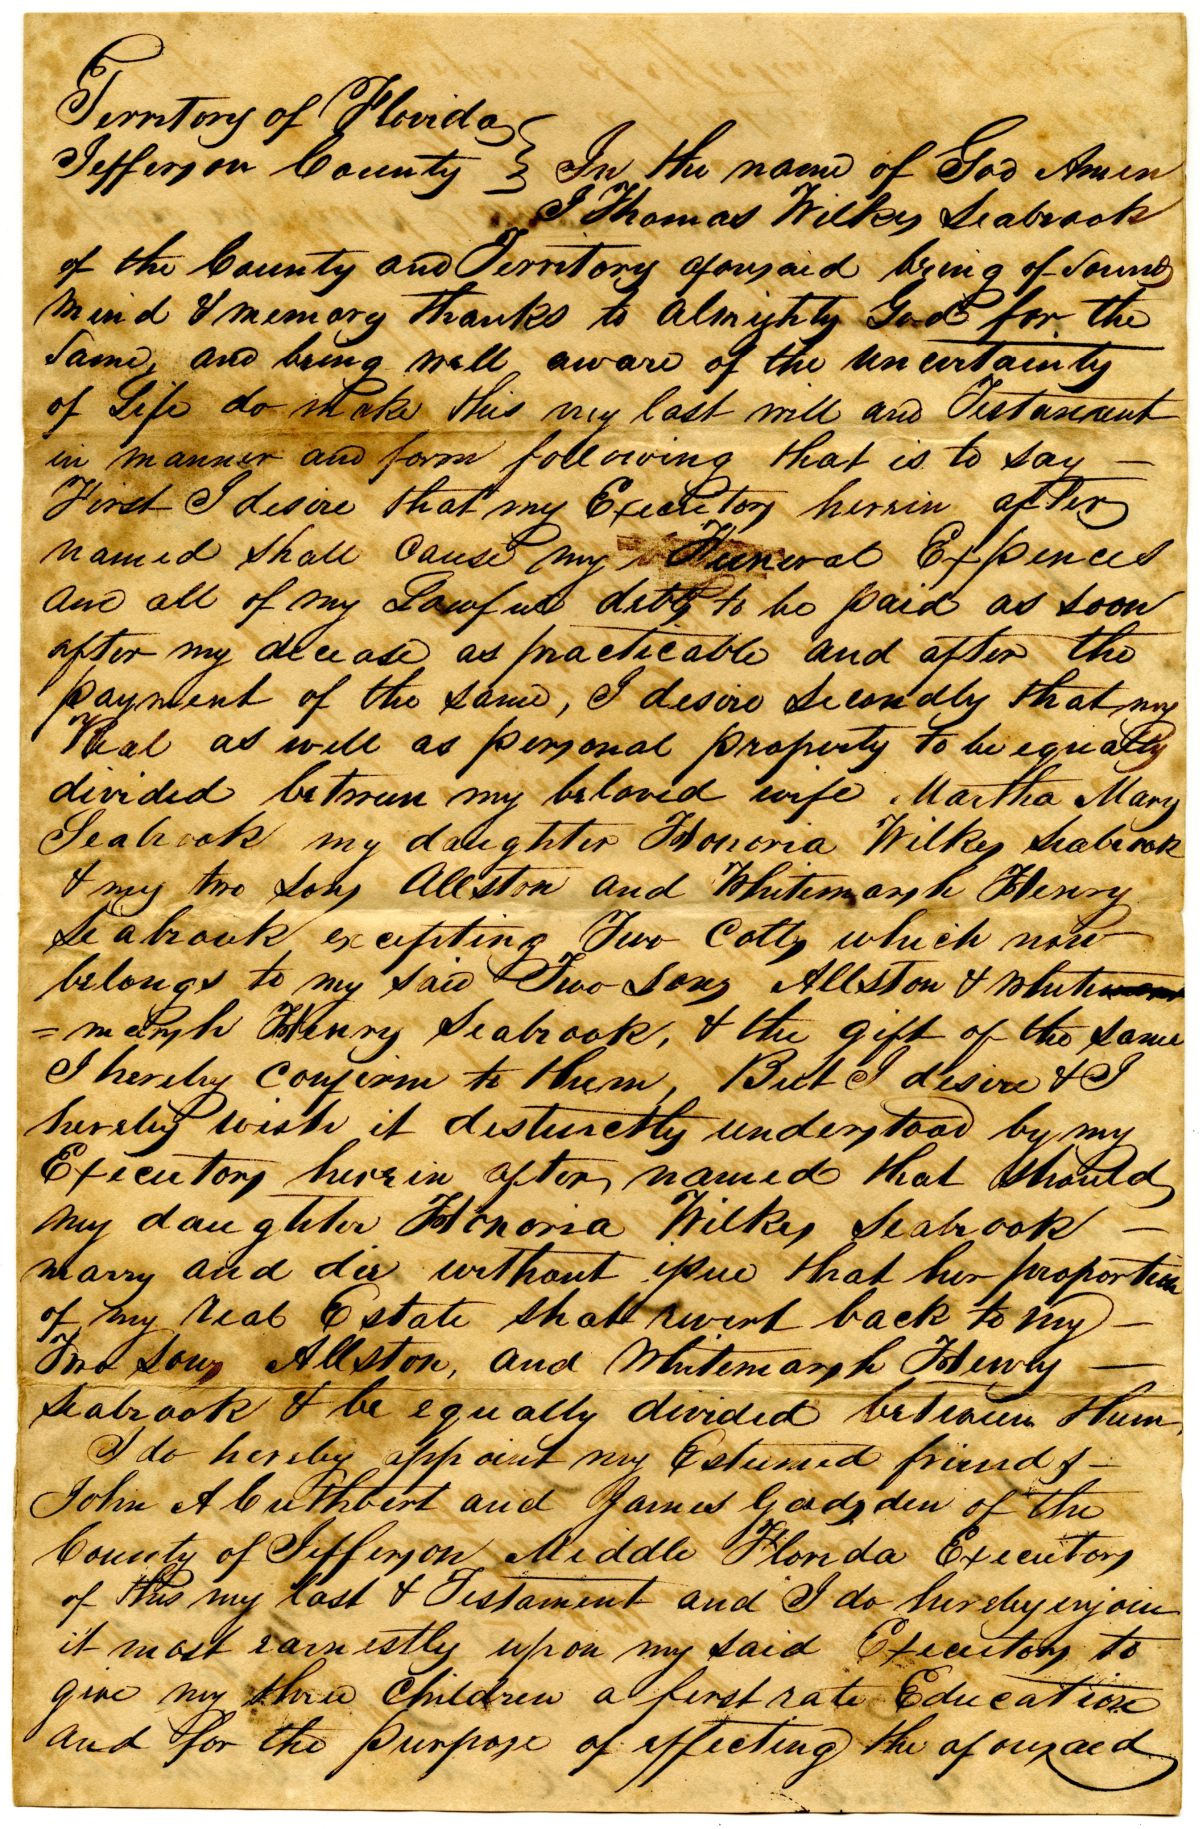 Territory of Florida
Jefferson County } In the name of God Amen
I Thomas Wilkes Seabrook
of the County and Territory aforesaid being of Sound
mind & memory thanks to Almighty God for the
Same, and being well aware of the uncertainty
of Life do make this my last will and Testament
in manner and form following that is to say —
First I desire that my Executors herein after
named shall cause my Funeral Expences
and all of my Lawful debts to be paid as soon
after my decease as practicable and after the
payment of the same, I desire Secondly that my
Real as well as personal property to be equally
divided between my beloved wife Martha Mary
Seabrook my daughter Honoria Wilkes Seabrook
& my two Sons Allston and Whitemarsh Henry
Seabrook excepting Two Colts which now
belongs to my said Two Sons Allston & White
= marsh Henry Seabrook, & the gift of the same
I hereby confirm to them, But I desire & I
hereby wish it distinctly understood by my
Executors herein after, named that should
my daughter Honoria Wilkes Seabrook —
marry and die without issue that her proportion
of my real Estate shall revert back to my —
Two Sons Allston, and Whitemarsh Henry —
Seabrook & be equally divided between them,
I do hereby appoint my Esteemed friends —
John A Cuthbert and James Gadsden of the
County of Jefferson Middle Florida Executors
of this my last & Testament and I do hereby enjoin
it most earnestly upon my said Executors to
give my three Children a first rate Education
and for the purpose of effecting the aforesaid